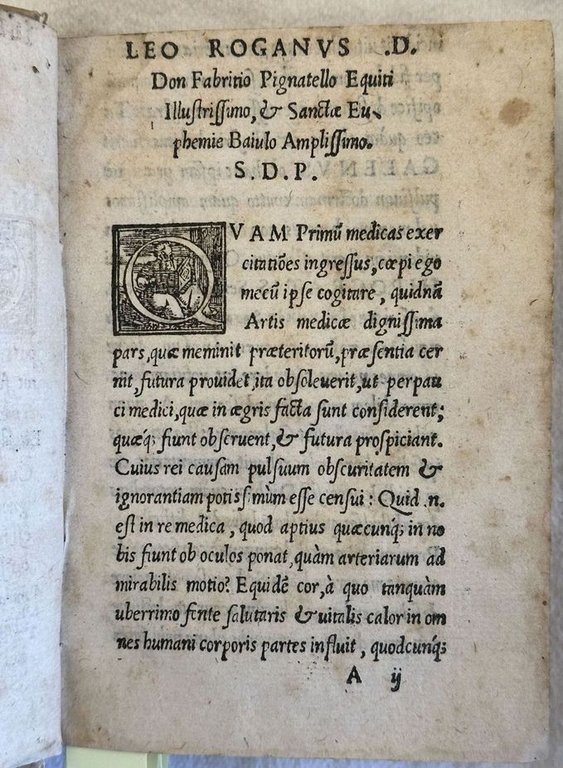 LEO ROGANVS .D.
Don Fabritio Pignatello Equiti
Illuſtriſſimo, & Sanctæ Eu-
phemie Baiulo Ampliſſimo.
S. D. P.
QVAM Primũ medicas exer
citatiões ingreſſus, cœpi ego
mecũ ipſe cogitare, quidnã
Artis medicæ digniſſima
pars, quæ meminit præteritorũ, præſentia cer
nit, futura prouidet, ita obſoleuerit, ut perpau
ci medici, quæ in ægris facta ſunt conſiderent;
quæq; fiunt obſeruent, & futura proſpiciant.
Cuius rei cauſam pulſuum obſcuritatem &
ignorantiam potiſsimùm eſſe cenſui: Quid .n.
eſt in re medica, quod aptius quæcunq; in no
bis fiunt ob oculos ponat, quàm arteriarum ad
mirabilis motio? Equidẽ cor, à quo tanquàm
uberrimo fonte ſalutaris & uitalis calor in om
nes humani corporis partes influit, quodcunq;
A ij